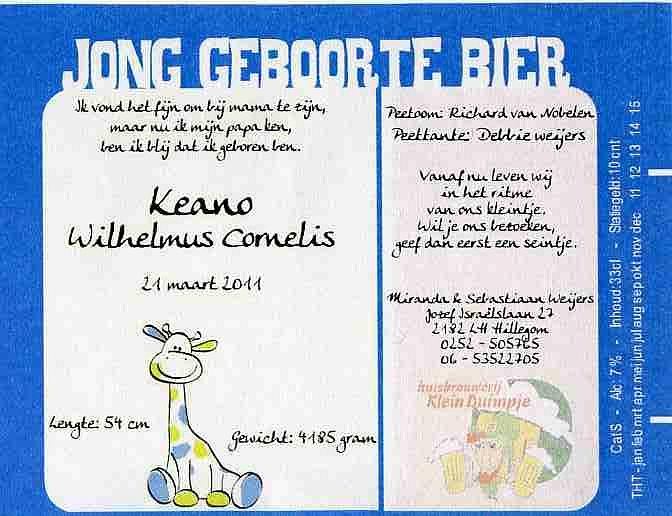 JONG GEBOORTE BIER
Ik vond het fijn om bij mama te zijn,
maar nu ik mijn papa ken,
ben ik blij dat ik geboren ben.
Keano
Wilhelmus Cornelis
21 maart 2011
Lengte: 54 cm
Gewicht: 4185 gram
Peetoom: Richard van Nobelen
Peettante: Debbie weijers
Vanaf nu leven wij
in het ritme
van ons kleintje.
Wil je ons bezoeken,
geef dan eerst een seintje.
Miranda & Sebastiaan Weijers
Jozef Israëlslaan 27
2182 LH Hillegom
0252 - 505765
06 - 53522705
huisbrouwerij
Klein Duimpje
Cat S - Alc: 7 % - Inhoud: 33cl - Statiegeld: 10 cnt
THT - jan feb mrt apr mei jun jul aug sep okt nov dec 11 12 13 14 15